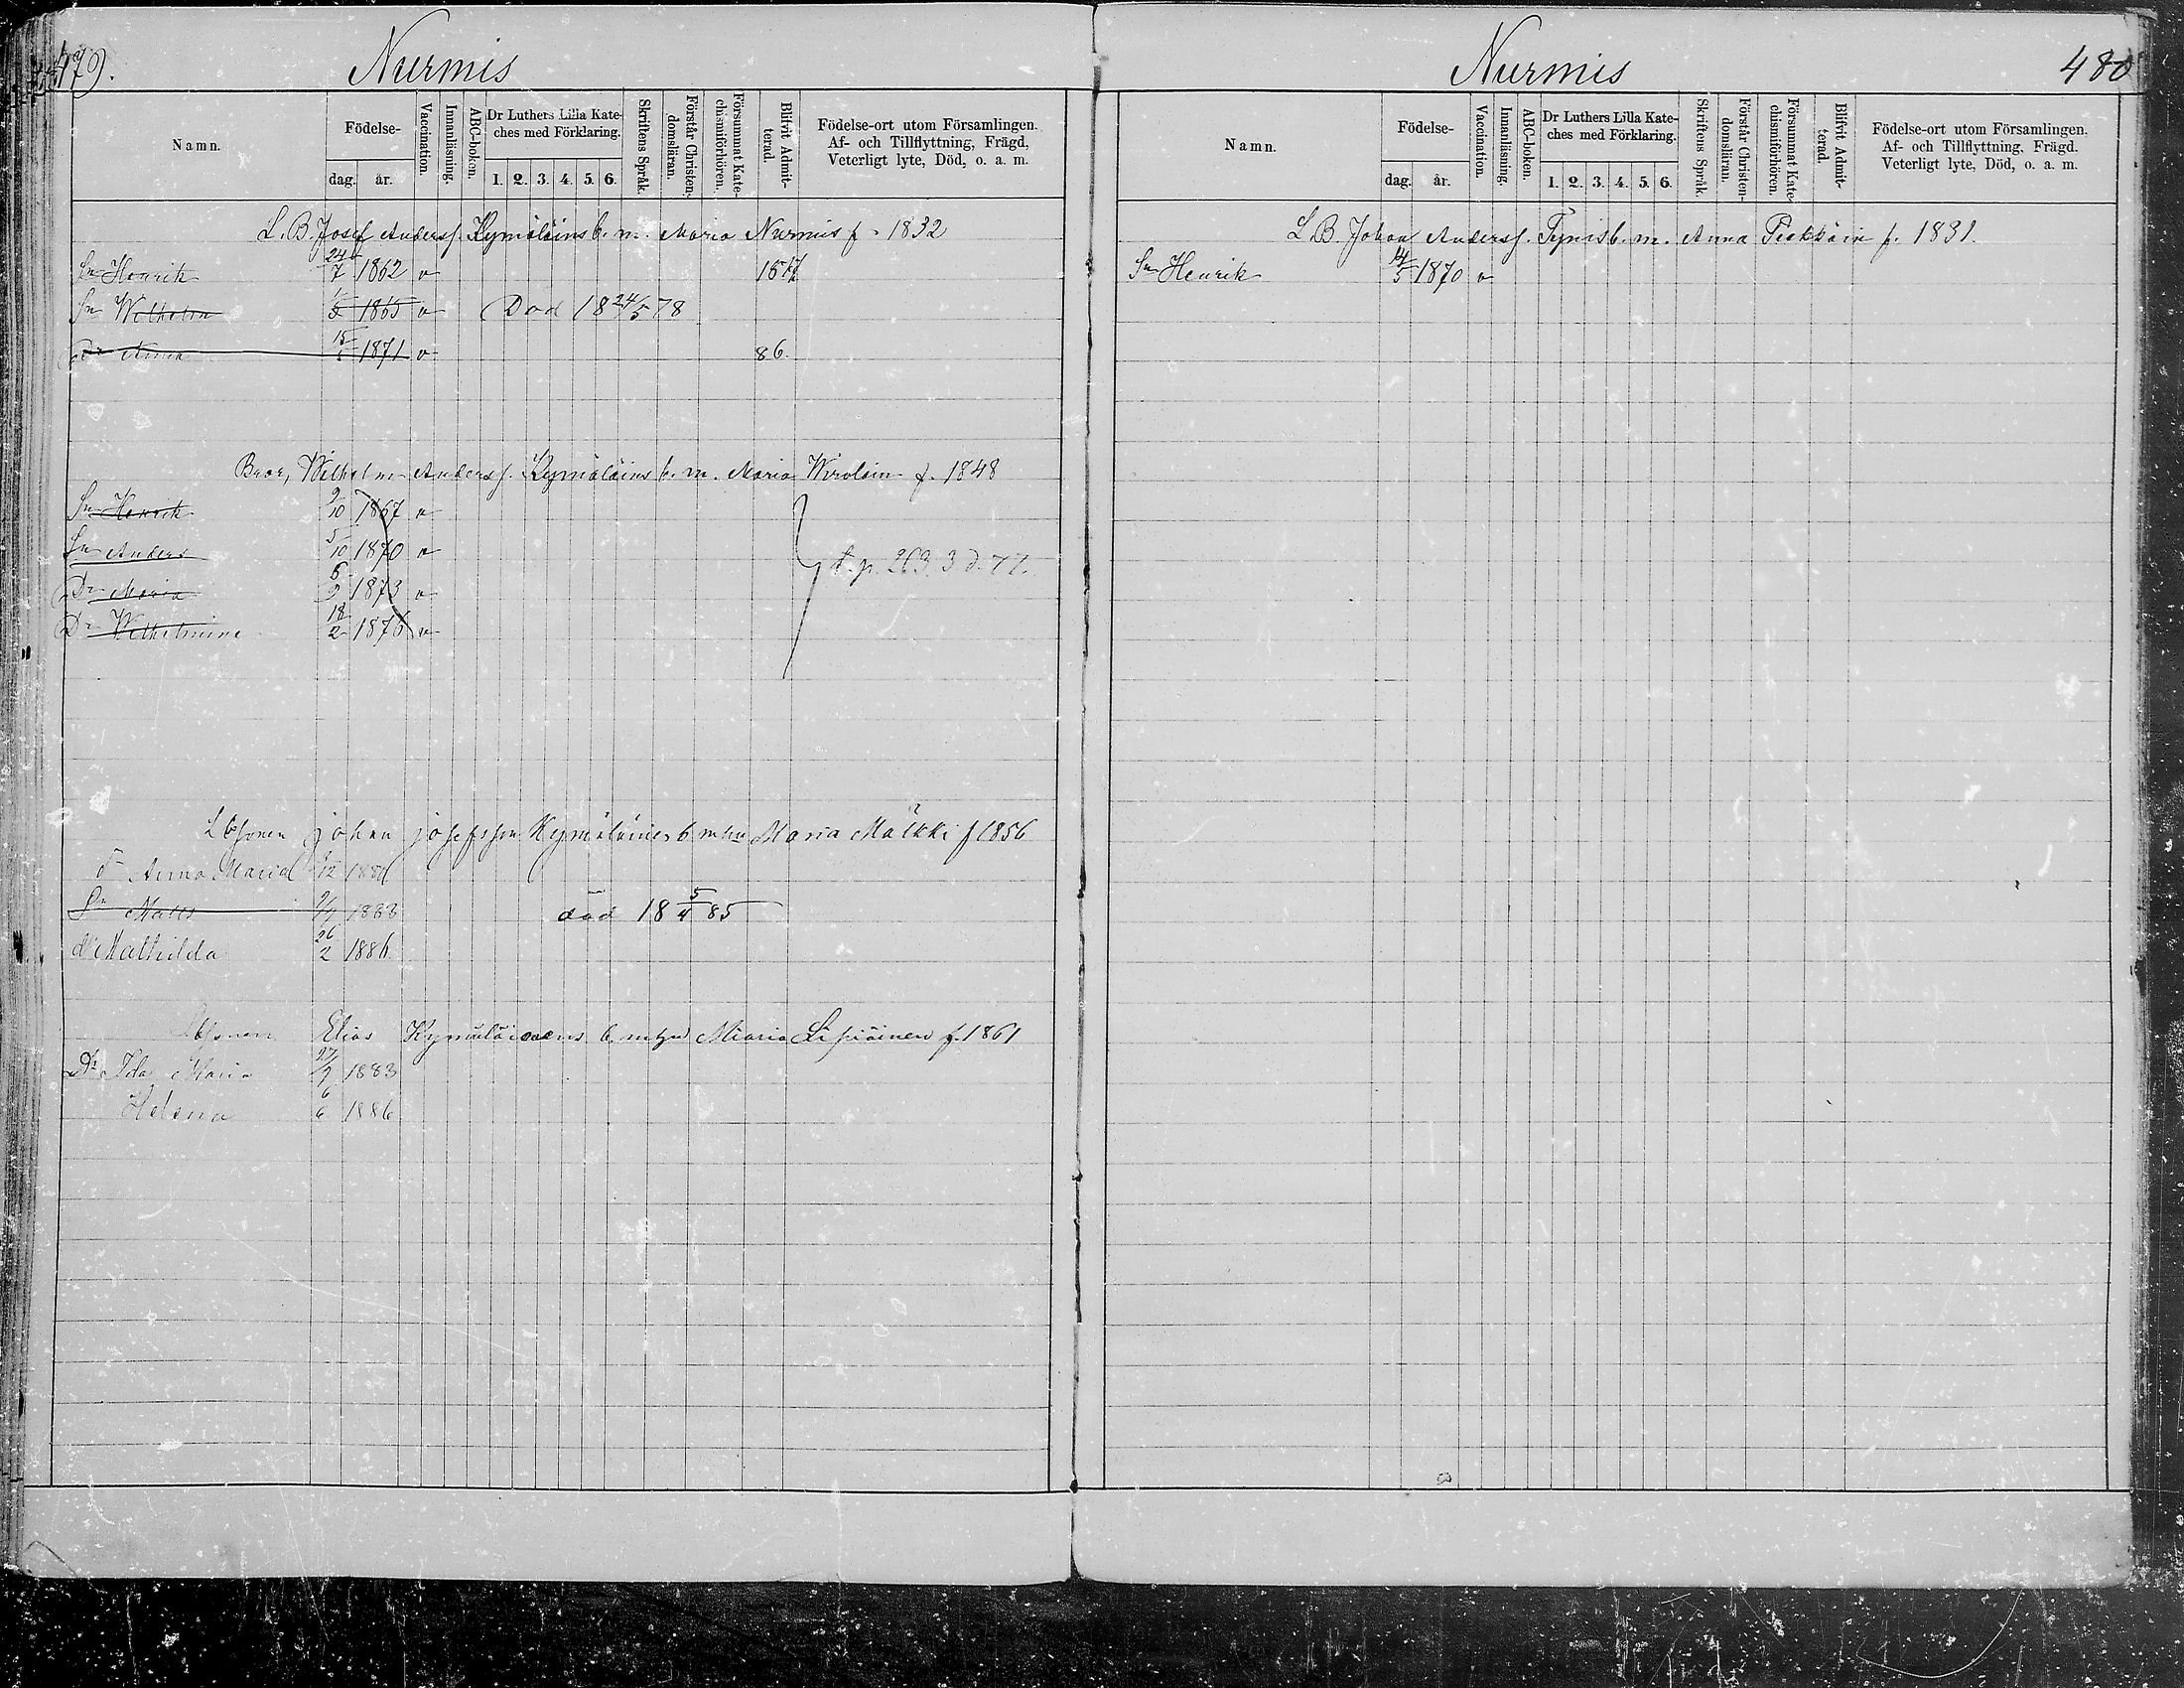 479.
Nurmis
Namn.
Födelse-
dag. år.
Vaccination.
Innanläsning.
ABC-boken.
Dr Luthers Lilla Kate-
ches med Förklaring.
1. 2. 3. 4. 5. 6.
Skriftens Språk.
Förstår Christen-
domsläran.
Försummat Kate-
chismiförhören.
Blifvit Admit-
terad.
Födelse-ort utom Församlingen.
Af- och Tillflyttning, Frägd,
Veterligt lyte, Död, o. a. m.
L. B. Josef Anders s. Kymäläins b. m. Maria Nurmis f. 1832
Sn Henrik 24/7 1862 v
Sn Wilhelm 1865 v Död 18 24/5 78
Dr 15 1871 v 86.
Bror, Wilhelm Anders s. Kymäläins b. m. Maria Wirolain f. 1848
Sn Henrik 9/10 1867 v
Sn Anders 5/10 1870 v
Dr Maria 6/9 1873 v
Dr Wilhelmina 18/2 1876 v
t. p. 263. 3 d. 77.
Johan Josefsson Kymäläines b m hu Maria Mälkki f 1856
dr Anna Maria 12
Sn Matts 1883 död 18 5/4 85
dr Mathilda 26/2 1886
Elias Kymäläinens b. m hu Maria f. 1861
Dr Ida Maria 27/7 1883
Helena 6/6 1886
Nurmis
480
Namn.
Födelse-
dag. år.
Vaccination.
Innanläsning.
ABC-boken.
Dr Luthers Lilla Kate-
ches med Förklaring.
1. 2. 3. 4. 5. 6.
Skriftens Språk.
Förstår Christen-
domsläran.
Försummat Kate-
chismiförhören.
Blifvit Admit-
terad.
Födelse-ort utom Församlingen.
Af- och Tillflyttning, Frägd.
Veterligt lyte, Död, o. a. m.
L. B. Johan Anders s. Tynis b. m. Anna f. 1831.
Sn Henrik 14/5 1870 v